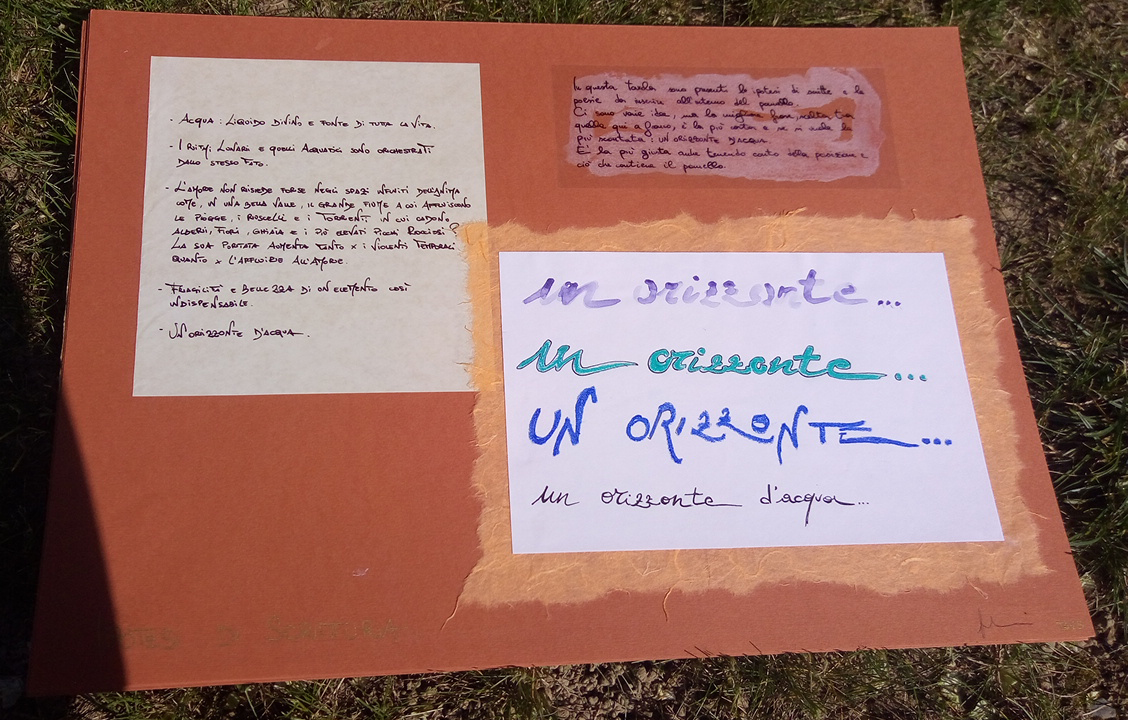 - ACQUA : LIQUIDO DIVINO E FONTE DI TUTTA LA VITA.
- I RITMI LUNARI E QUELLI ACQUATICI SONO ORCHESTRATI
DALLO STESSO FATO.
- L'AMORE NON RISIEDE FORSE NEGLI SPAZI INFINITI DELL'ANIMA
COME, IN UNA BELLA VALLE, IL GRANDE FIUME A CUI AFFLUISCONO
LE PIOGGE, I RUSCELLI E I TORRENTI IN CUI CADONO
ALBERI, FIORI, GHIAIA E I PIÙ ELEVATI PICCHI ROCCIOSI?
LA SUA PORTATA AUMENTA TANTO X I VIOLENTI TEMPORALI
QUANTO X L'AFFLUIRE ALL'AMORE.
- FRAGILITÀ E BELLEZZA DI UN ELEMENTO COSÌ
INDISPENSABILE.
- UN ORIZZONTE D'ACQUA.
In questa tavola sono presenti le ipotesi di scritte e le
poesie da inserire all'interno del pannello.
Ci sono varie idee, ma la migliore
quella qui a fianco, è la più corta e se si vuole la
più scontata : UN ORIZZONTE D'ACQUA
È la più giusta anche tenendo conto della posizione e
ciò che contiene il pannello.
un orizzonte...
un orizzonte...
UN ORIZZONTE...
un orizzonte d'acqua...